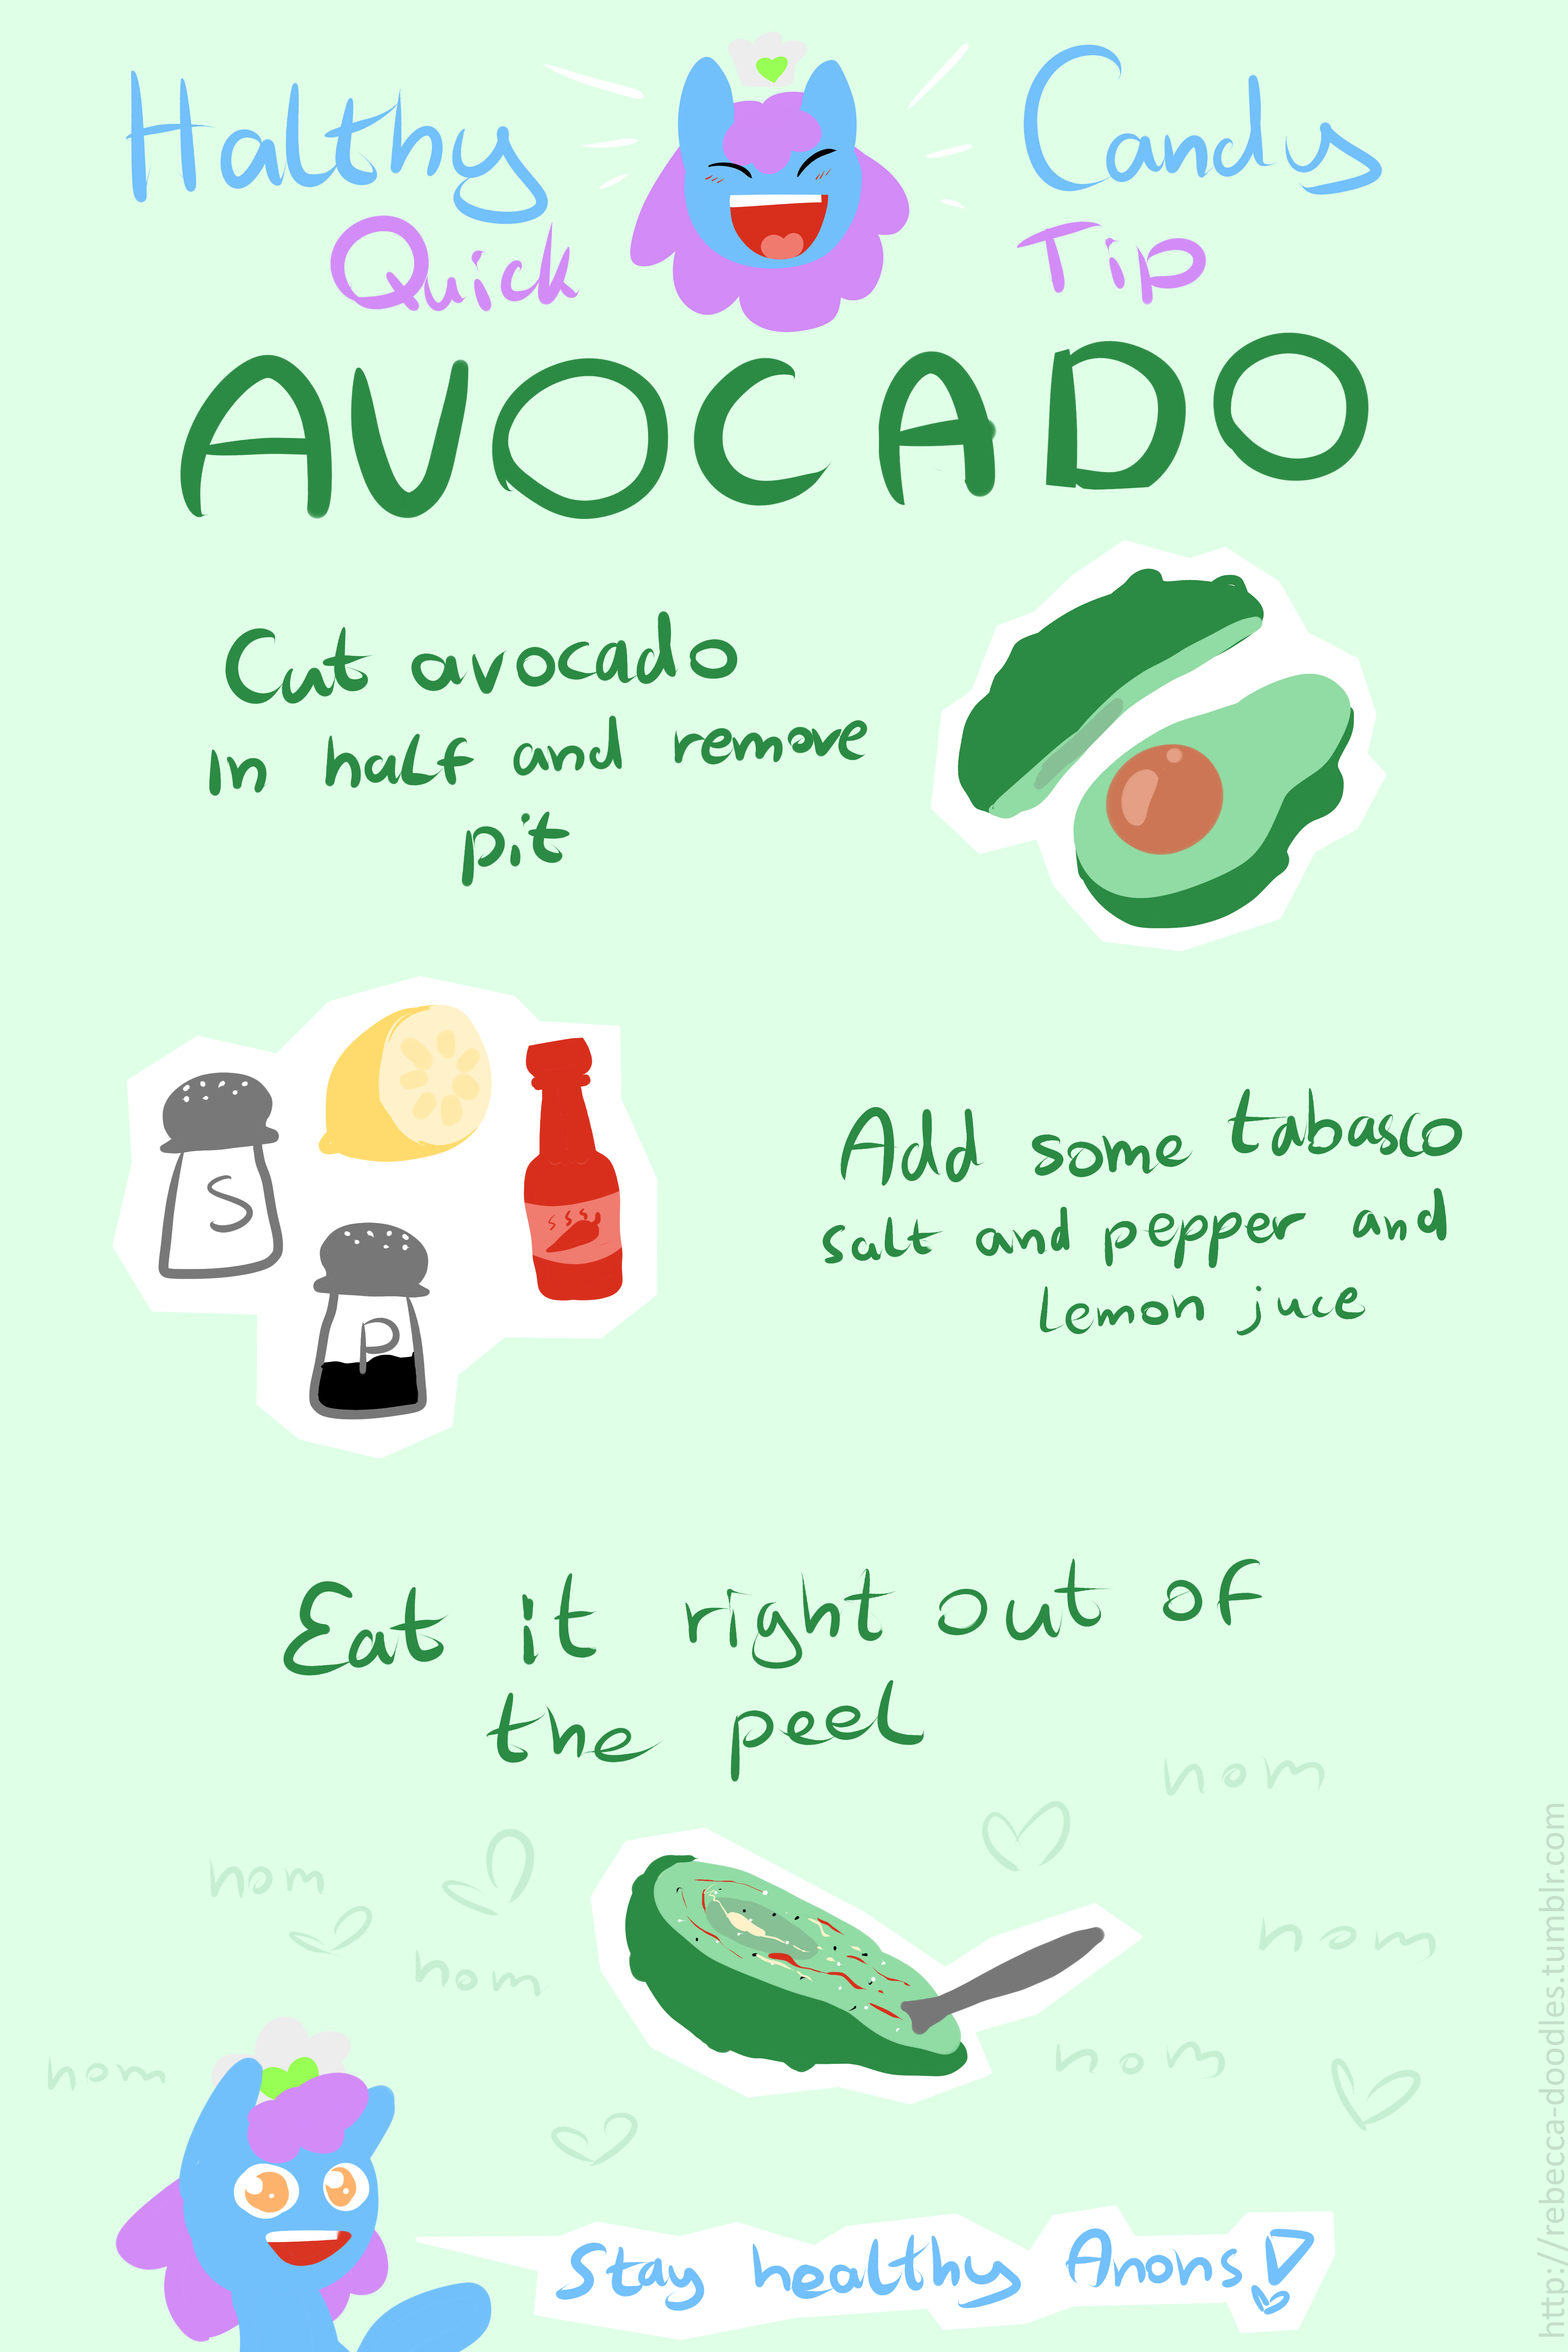 Halthy Candy
Quick Tip
AVOCADO
Cut avocado
in half and remove
pit
S
P
Add some tabasco
salt and pepper and
lemon juce
Eat it right out of
the peel
nom
nom
nom
nom
nom
nom
Stay healthy Anons!
http://rebecca-doodles.tumblr.com